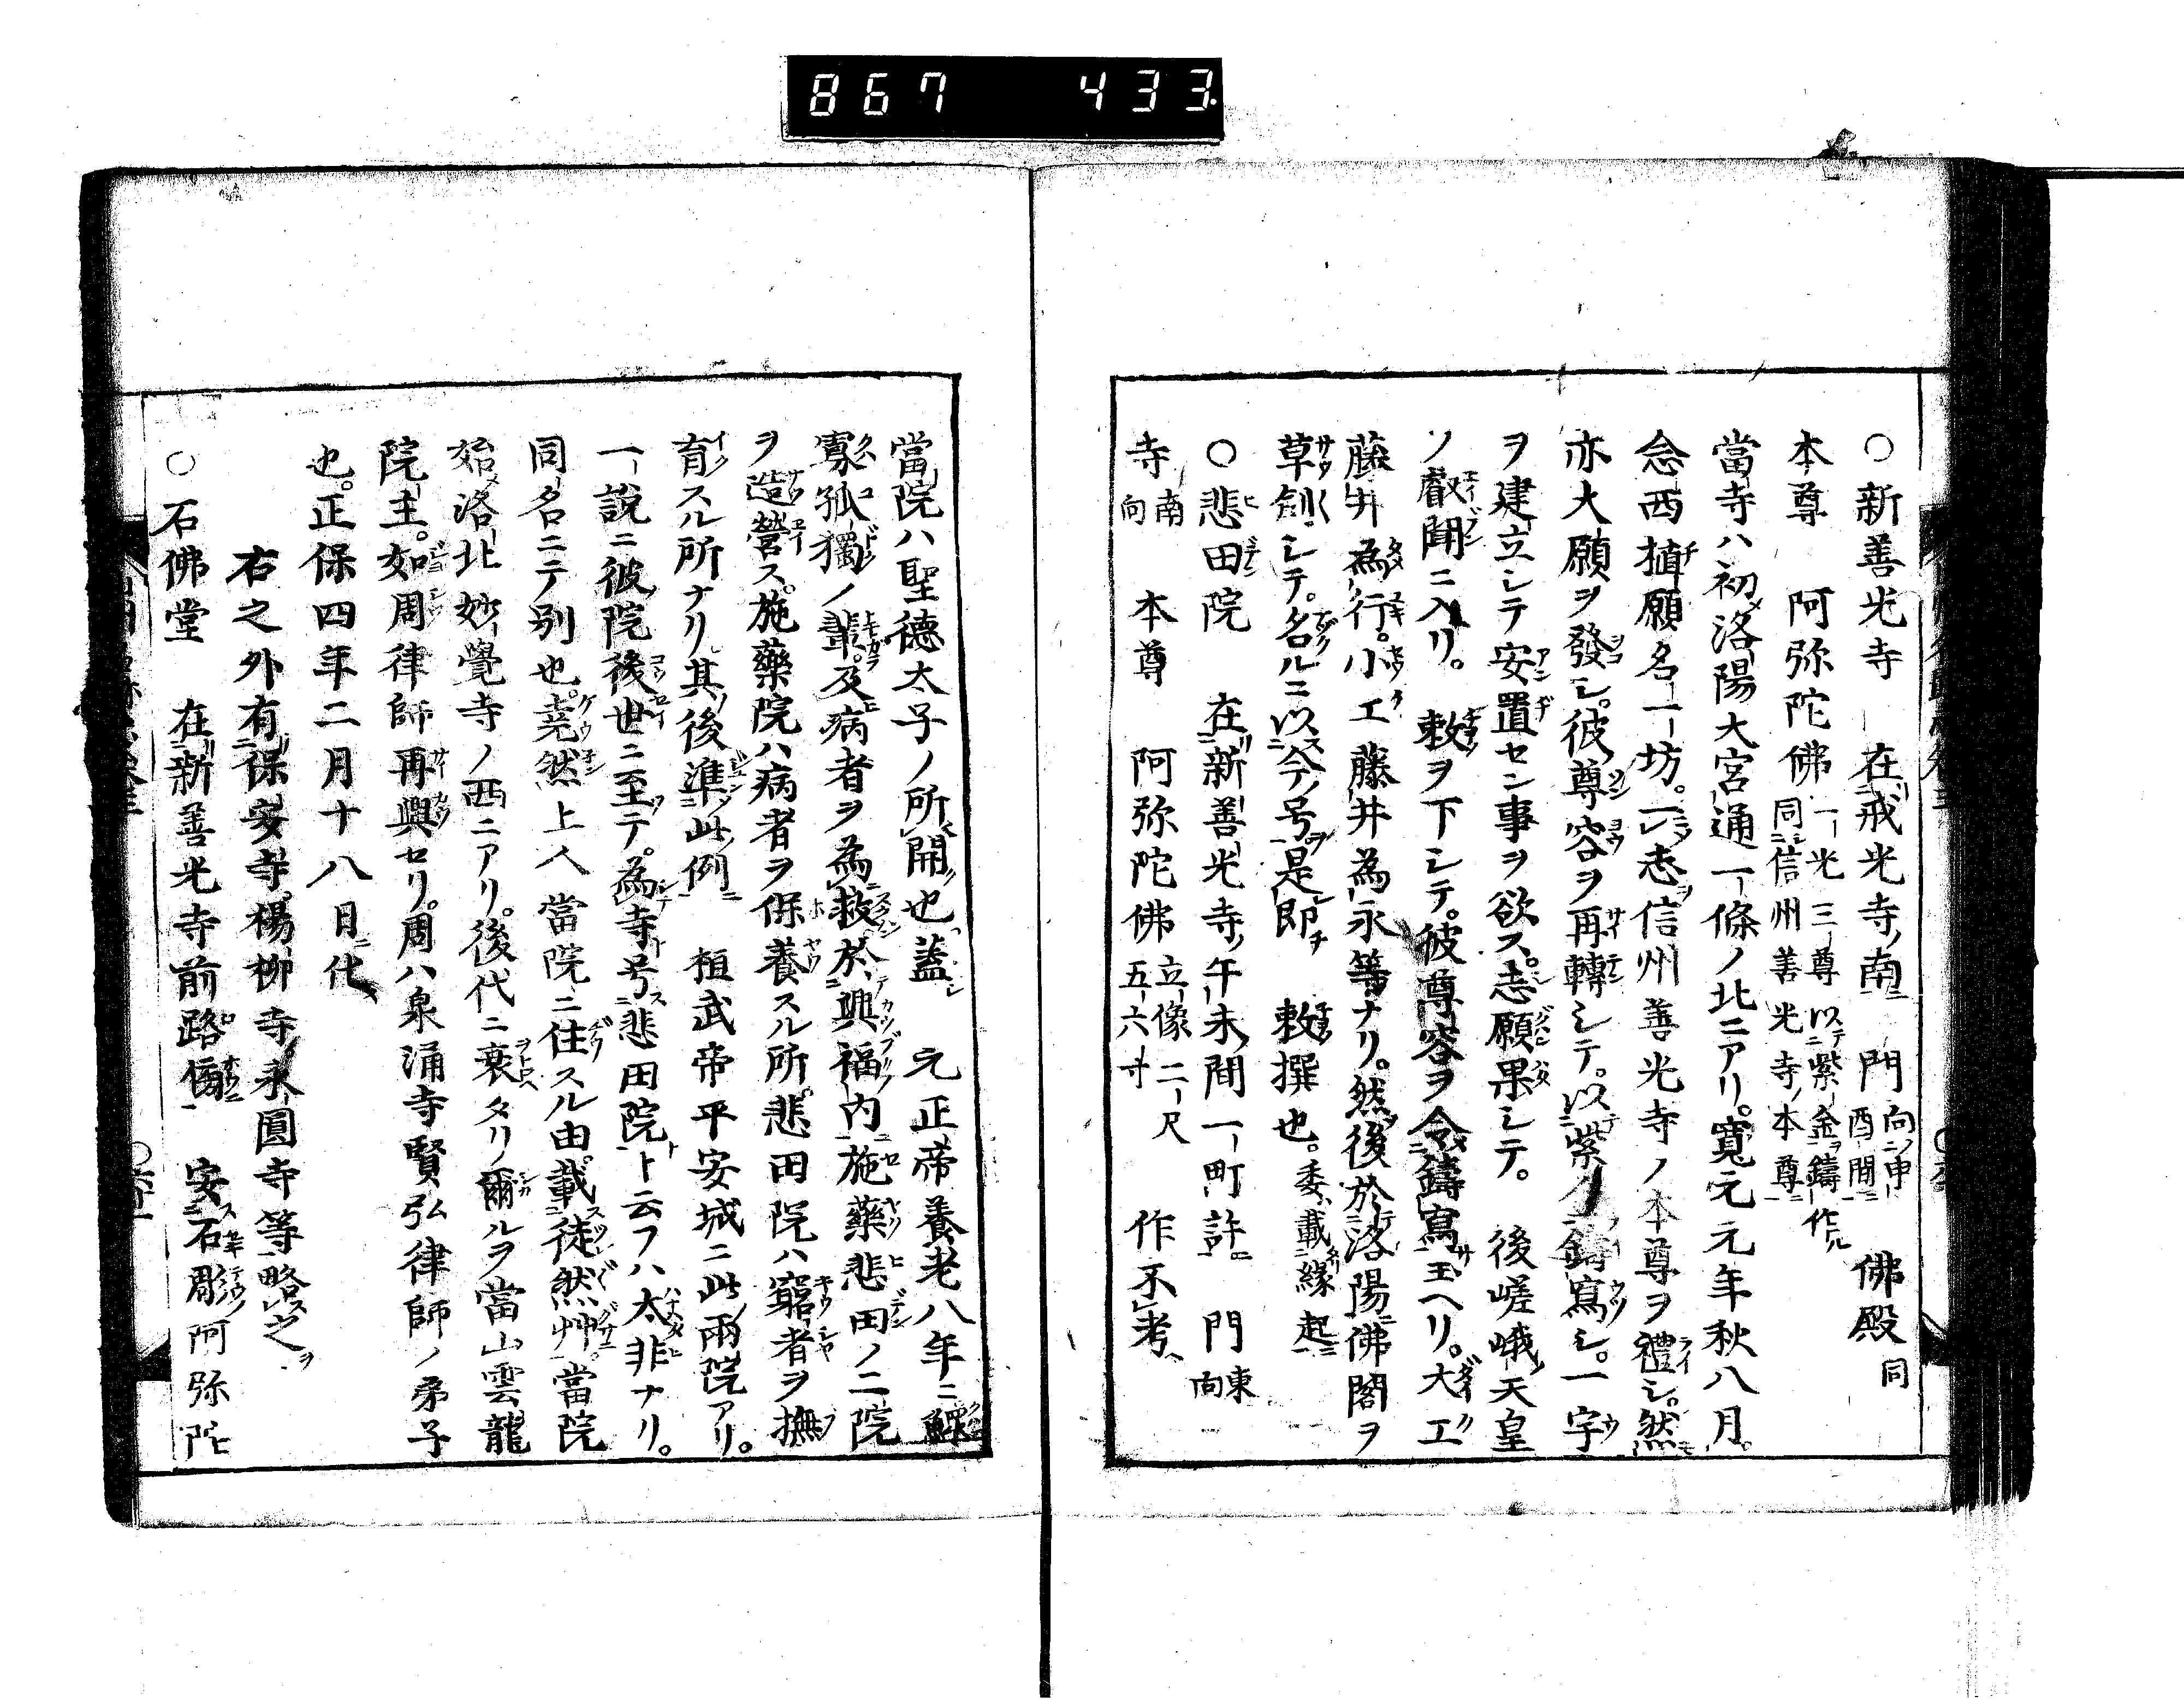 867 433
○新善光寺 在戒光寺ノ南 門向申酉間 佛殿同
本尊 阿弥陀佛 一光三尊以紫金鑄作ル 同信州善光寺ノ本尊
當寺ハ初洛陽大宮通一條ノ北ニアリ。寛元元年秋八月。
念西 願名一坊。一志信州善光寺ノ本尊ヲ禮シ。然
亦大願ヲ發シ。彼尊容ヲ再轉シテ。以紫 鑄寫シ。一宇
ヲ建立シテ安置セン事ヲ欲ス。志願果シテ。 後嵯峨天皇
ノ叡聞ニ入リ。 敕ヲ下シテ。彼尊容ヲ令鑄寫玉ヘリ。大工
藤井為行。小工藤井為永等ナリ。然後於洛陽佛閣ヲ
草創シテ。名ルニ以今号。是即 敕撰也。委載緣起
○悲田院 在新善光寺ノ午未間一町許 門東向
寺南向 本尊 阿弥陀佛 立像二尺五六寸 作不考
當院ハ聖德太子ノ所開也蓋 元正帝養老八年ニ鰥
寡孤獨ノ輩。及病者ヲ為救於興福内施藥悲田ノ二院
ヲ造營ス。施藥院ハ病者ヲ保養スル所。悲田院ハ窮者ヲ撫
育スル所ナリ。其後準此例 桓武帝平安城ニ此兩院アリ。
一説ニ彼院後世ニ至テ。為寺号悲田院ト云フハ太非ナリ。
同名ニテ別也。堯然上人當院ニ住スル由。載徒然艸。當院
始洛北妙覺寺ノ西ニアリ。後代ニ衰タリ爾ルヲ當山雲龍
院主。如周律師再興セリ。周ハ泉涌寺賢弘律師ノ弟子
也。正保四年二月十八日ニ化
右之外有保安寺。楊柳寺。永圓寺等略之
○石佛堂 在新善光寺前路傍 安石彫阿弥陀